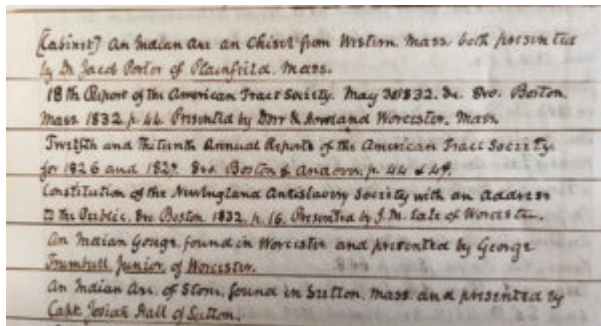 [Cabinet] An Indian Axe an Chisel from Western Mass both presented
by Dr Jacob Porter of Plainfield. Mass.
18th Report of the American Tract Society. May 30 1832. &c. 8vo. Boston.
Mass 1832. p. 44. Presented by Dorr & Howland Worcester. Mass
Twelfth and thirteenth Annual Reports of the American Tract Society.
for 1826 and 1827. 8vo. Boston & Andover. p. 44 & 49.
Constitution of the New England Antislavery Society with an Address
to the Public. 8vo Boston 1832. p. 16. Presented by J. M. Earle of Worcester.
An Indian Gouge found in Worcester and presented by George
Trumbull, Junior, of Worcester.
An Indian Axe of Stone, found in Sutton, Mass. and presented by
Capt. Josiah Hall of Sutton.